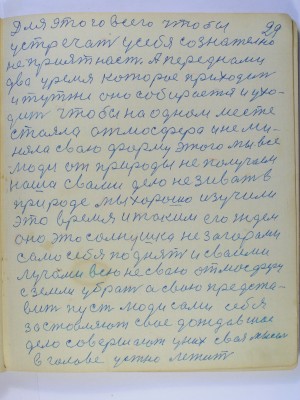 29
Для этого всего чтобы
устречат у себя сознателно
неприятнаст. А перед нами
два уремя которое приходит
и тут же оно собирается и ухо-
дит чтобы на одном месте
стаяла атмосфера и не ми-
няла сваю форму этого мы все
люди от природы не получали
наша с вами дело не зиват в
природе мы хорошо изучили
это время и таким его ждем
оно это солнушка не загорами
само себя поднят и сваими
лучами всю не сваю атмосферу
с земли убрат а сваю предста-
вит пуст люди сами себя
заставляют свае дождавшое
дело совершают у них свая мысля
в голове устно лежит